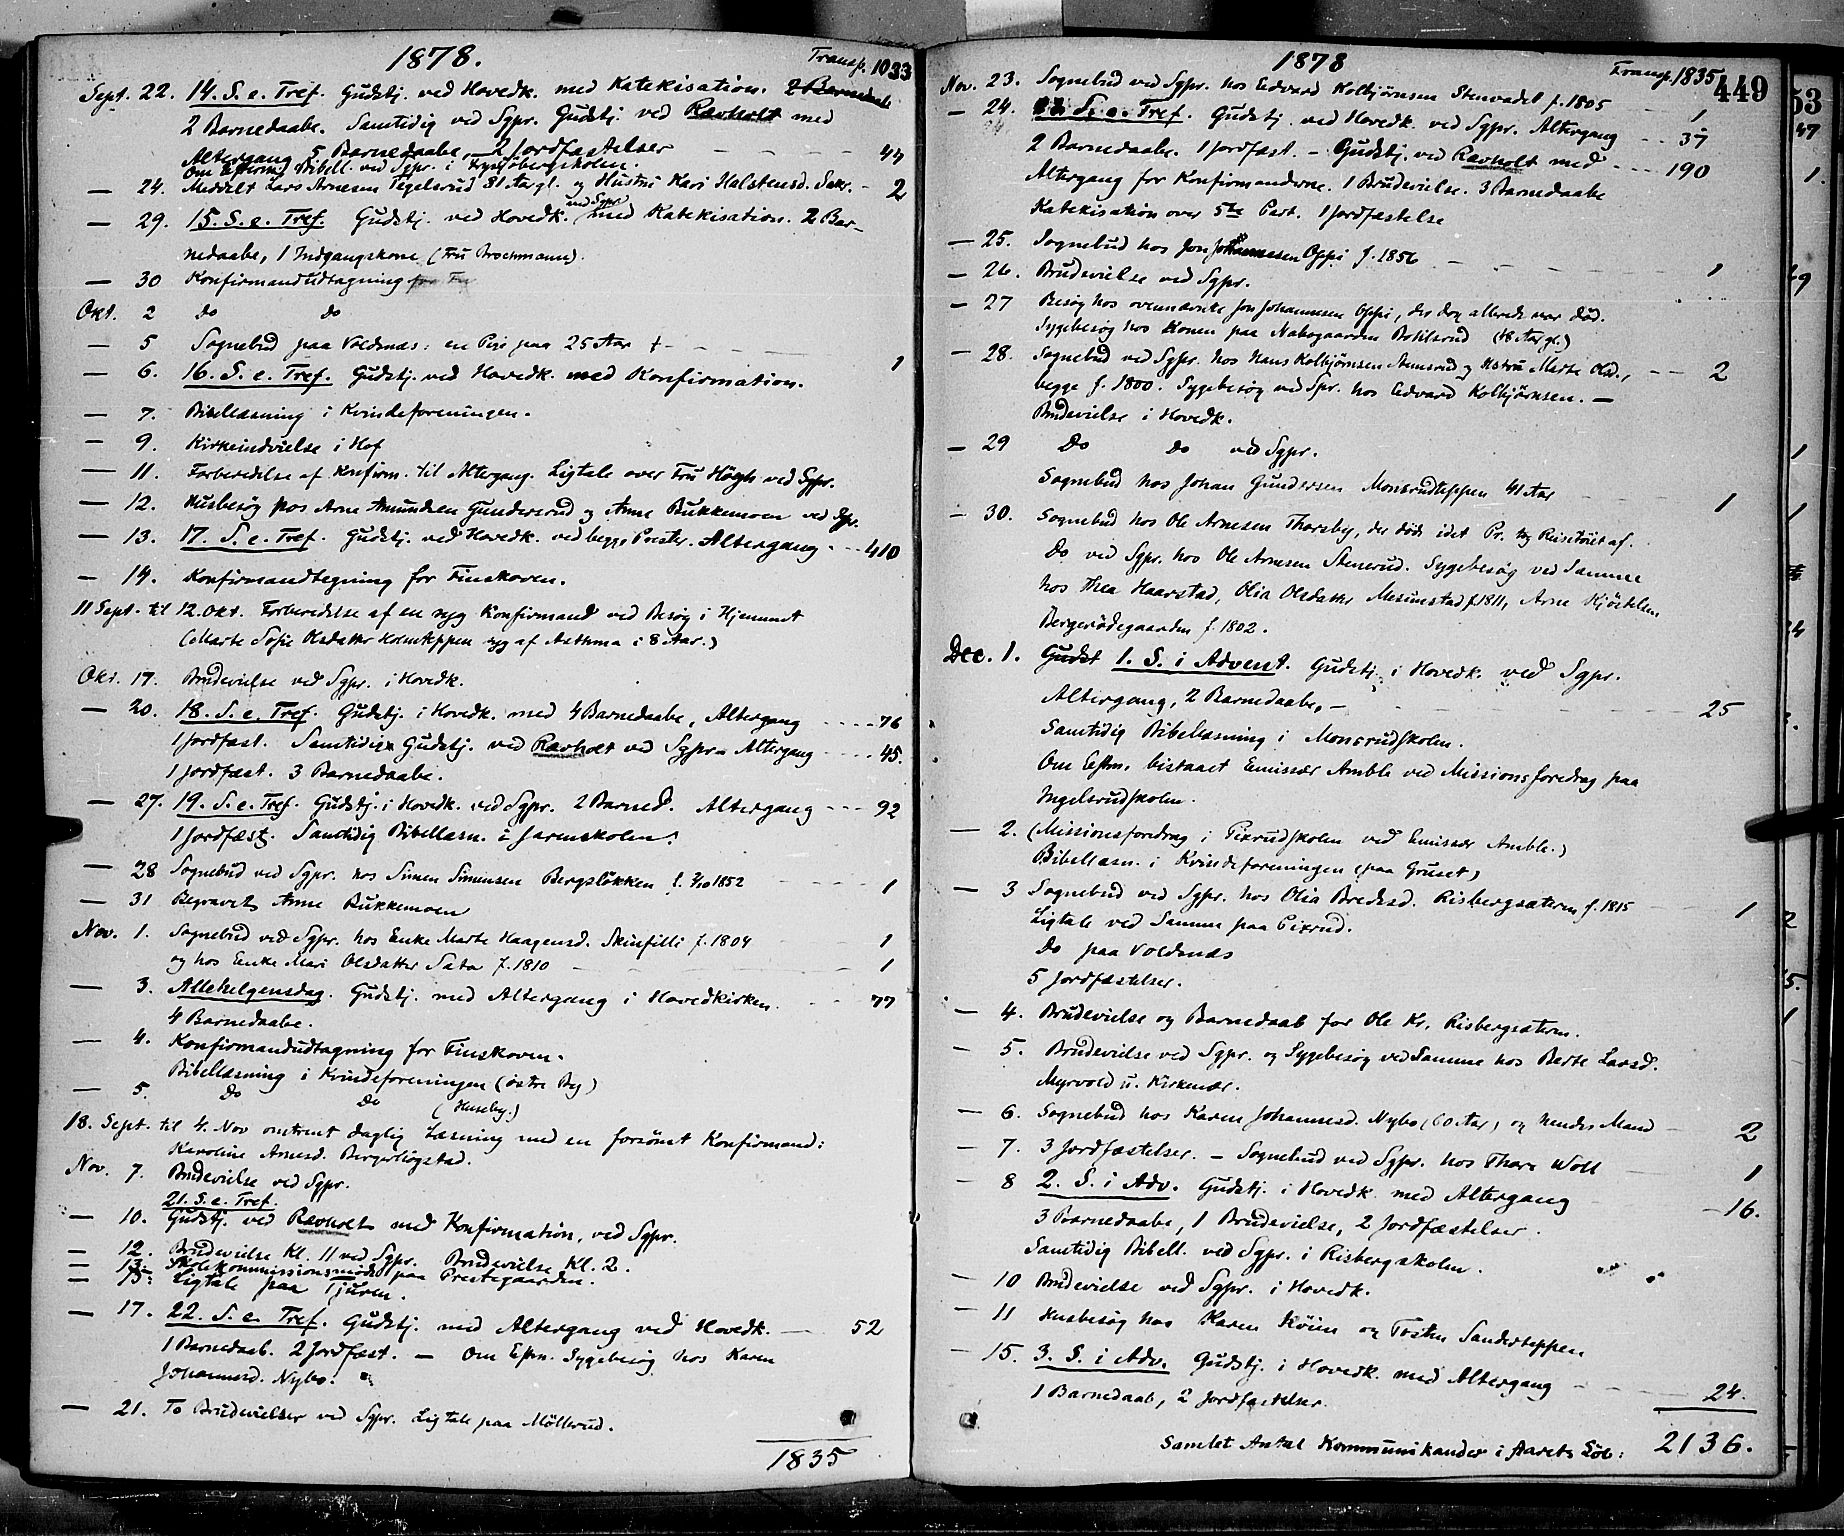 1878.
Transp. 1033
Sept. 22. 14. S. e. Tref. Gudstj. ved Hovedk. med Katekisation. 2 Barnedaab
2 Barnedaabe. Samtidig ved Sgpr. Gudstj. ved Ravholt med
Altergang 5 Barnedaabe, 2 Jordfæstelser 44
Om Efterm. Bibell. ved Sgpr. i
— 24. Meddelt Lars Arnesen Tegelsrud 81 Aar gl. og Hustru Kari Halstensd. Sakr. - 2
— 29. 15. S. e. Tref. Gudstj. ved Hovedk. ved Sgpr. med Katekisation. 2 Bar-
nedaabe, 1 Indgangskone (Fru Brochmann).
— 30 Konfirmandudtagning
Okt. 2 Do Do
— 5 Sognebud paa Voldnæs: en Pige paa 25 Aar + 1
— 6. 16. S. e. Tref. Gudstj. ved Hovedk. med Konfirmation.
— 7. Bibellæsning i Kvindeforeningen.
— 9. Kirkeindvielse i Hof
— 11. Forberedelse af Konfirm. til Altergang. Ligtale over Fru Høegh ved Sgpr.
— 12. Husbesøg hos Arne Amundsen Gundersrud og Anne Bukkemoen ved Sgpr.
— 13. 17. S. e. Tref. Gudstj. ved Hovedk. ved begge Prester. Altergang - - 410
— 14. Konfirmandtegning for Finskoven.
11 Sept. til 12. Okt. Forberedelse af en syg Konfirmand ved Besøg i Hjemmet
(Marte Sofie Olsdatter Holmteppen syg af Asthma i 8 Aar.)
Okt. 17. Brudevielse ved Sgpr. i Hovedk.
— 20. 18. S. e. Tref. Gudstj. i Hovedk. med 4 Barnedaabe, Altergang - - - 76
1 Jordfæst. Samtidig Gudstj. ved Ravholt ved Sgpr. Altergang - - - 45.
1 Jordfæst. 3 Barnedaabe.
— 27. 19. S. e. Tref. Gudstj. i Hovedk. ved Sgpr. 2 Barned. Altergang - - - 92
1 Jordfæst. Samtidig Bibellæsn. i Jarenskolen.
— 28 Sognebud ved Sgpr. hos Simen Simensen Bergsløkken f. 1852 1
— 31 Begravet Anne Bukkemoen
Nov. 1. Sognebud ved Sgpr. hos Enke Marte Haagensd. Skinfilli f. 1804 1
og hos Enke Mari Olsdatter Sata f. 1810 1
— 3. Allehelgensdag. Gudstj. med Altergang i Hovedkirken 77
4 Barnedaabe.
— 4. Konfirmandudtagning for Finskoven.
Bibellæsning i Kvindeforeningen (østre By)
— 5. Do Do (Huseby.)
18. Sept. til 4. Nov omtrent daglig Læsning med en forsømt Konfirmand:
Karoline Arnesd. Bergerhøgstad.
Nov. 7. Brudevielse ved Sgpr.
21. S. e. Tref.
— 10. Gudstj. ved Ravholt med Konfirmation, ved Sgpr.
— 12. Brudevielse Kl. 11 ved Sgpr. Brudevielse Kl. 2.
— 13. Skolekommissionsmøde paa Prestegaarden.
— 15. Ligtale paa Tjuren.
— 17. 22. S. e. Tref. Gudstj. med Altergang ved Hovedk. — 52
1 Barnedaab. 2 Jordfæst. — Om Eftm. Sygebesøg hos Karen
Johannesd. Nybo.
— 21. To Brudevielser ved Sgpr. Ligtale paa Møllerud.
1835
1878
Transp. 1835
449
53
Nov. 23. Sognebud ved Sgpr. hos Edvard Kolbjørnsen Stenvadet f. 1805 1
— 24. S. e. Tref. Gudstj. ved Hovedk. ved Sgpr. Altergang - - 37
2 Barnedaabe. 1 Jordfæst. - Gudstj. ved Ravholt med - - - 190
Altergang for Konfirmanderne. 1 Brudevielse. 3 Barnedaabe
Katekisation over 5te Part. 1 Jordfæstelse
— 25. Sognebud hos Jon Johannesen Oppi f. 1856 1
— 26. Brudevielse ved Sgpr.
— 27 Besøg hos ovennævnte Jon Johannesen Oppi, der dog allerede var død.
Sygebesøg hos Konen paa Nabogaarden Bohlsrud (48 Aar gl.)
— 28. Sognebud ved Sgpr. hos Hans Kolbjørnsen Stensrud og Hustru Marte Olsd., - - 2
begge f. 1800. Sygebesøg ved Spr. hos Edvard Kolbjørnsen. —
Brudevielse i Hovedk.
— 29 Do Do ved Sgpr.
Sognebud hos Johan Gundersen Monsrudteppen 41 Aar 1
— 30. Sognebud hos Ole Arnesen Thorsby, der døde idet Pr. tog Reisetøiet af.
Do ved Sgpr. hos Ole Arnesen Stenerud. Sygebesøg ved Samme
hos Thea Haarstad, Olia Olsdatter f. 1811, Arne
Bergerødegaarden f. 1802.
Dec. 1. Gudst 1. S. i Advent. Gudstj. i Hovedk. ved Sgpr.
Altergang, 2 Barnedaabe, - 25
Samtidig Bibellæsning i Monsrudskolen.
Om Eftm. bistaaet Emissær Amble ved Missionsforedrag paa
Ingelsrudskolen.
— 2. (Missionsforedrag i Pixrudskolen ved Emissær Amble.)
Bibellæsn. i Kvindeforeningen (paa Gruset)
— 3 Sognebud ved Sgpr. hos Olia Bredesd. Risbergsæteren f. 1815 1
Ligtale ved Samme paa Pixrud.
Do paa Voldnæs
5 Jordfæstelser.
— 4. Brudevielse og Barnedaab for Ole Kr. Risbergsætern.
— 5. Brudevielse ved Sgpr. og Sygebesøg ved Samme hos Berte Larsd.
Myrvold u. Kirkenær.
— 6. Sognebud hos Karen Johannesd. Nybo (60 Aar) og hendes Mand - 2
— 7. 3 Jordfæstelser. - Sognebud ved Sgpr. hos Thore Woll 1
— 8 2. S. i Adv. Gudstj. i Hovedk. med Altergang - 16.
3 Barnedaabe, 1 Brudevielse, 2 Jordfæstelser.
Samtidig Bibell. ved Sgpr. i Risbergskolen.
— 10 Brudevielse ved Sgpr. i Hovedk.
— 11 Husbesøg hos Karen Køien og Tosten Sanderteppen
— 15. 3. S. i Adv. Gudstj. i Hovedk. med Altergang - - - 24.
1 Barnedaab, 2 Jordfæstelser.
Samlet Antal Kommunikanter i Aarets Løb: 2136.